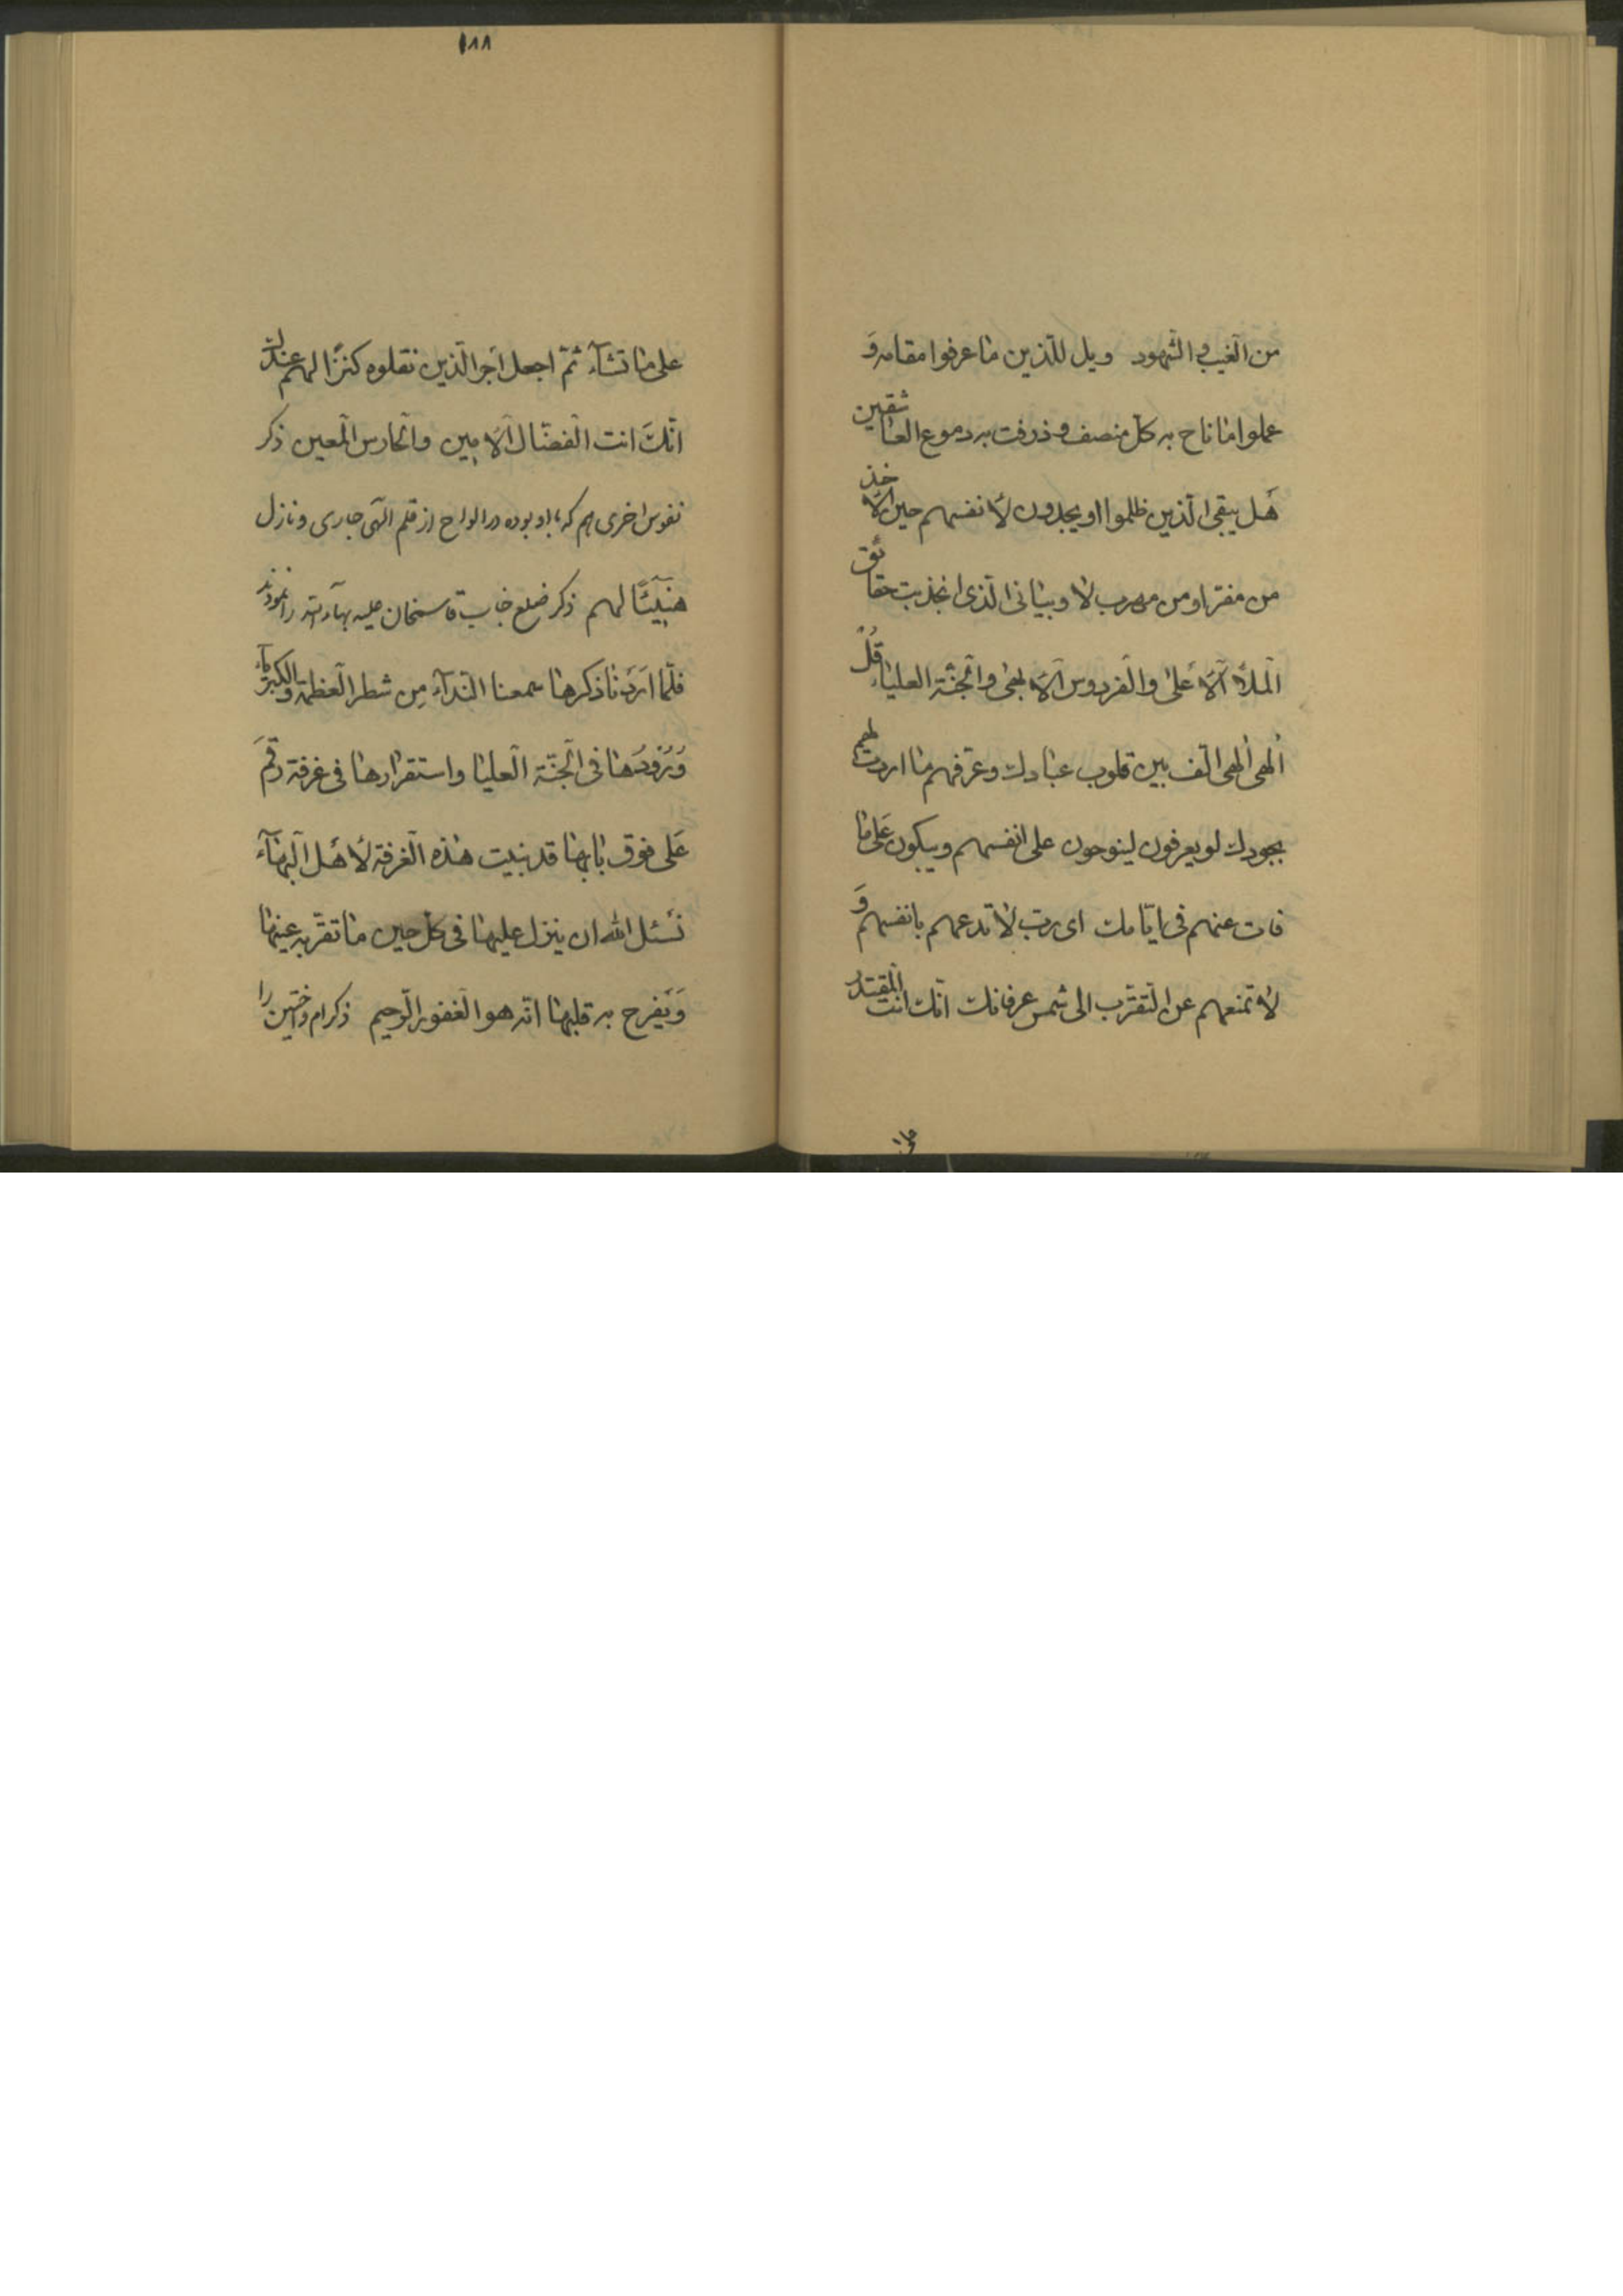 من الغیب و الشهود ویل للذین ما عرفوا مقامه و
عملوا ما ناح به کل منصف و ذرفت به دموع العاشقین
هل یبقی الذین ظلموا او یجدون لأنفسهم حین الأخذ
من مفر او من مهرب لا و بیانی الذی انجذبت به حقائق
الملأ الأعلی والفردوس الأبهی والجنة العلیا قل
الهی الهی الف بین قلوب عبادک وعرفهم ما اردت لهم
بجودک لو یعرفون لینوحون علی انفسهم ویبکون علی ما
فات عنهم فی ایامک ای رب لا تدعهم بانفسهم و
لا تمنعهم عن التقرب الی شمس عرفانک انک انت المقتدر
۱۸۸
علی ما تشآء ثم اجعل اجر الذین نقلوه کنزا لهم عندک
انک انت الفضال الأمین والحارس المعین ذکر
نفوس اخری هم که با او بوده در الواح از قلم الهی جاری و نازل
هنیئا لهم ذکر ضلع جناب علیه بهآءالله را نمودند
فلما اردنا ذکرها سمعنا الندآء من شطر العظمة والکبریآء
و ورودها فی الجنة العلیا واستقرارها فی غرفة رقم
علی فوق بابها قد بنیت هذه الغرفة لأهل البهآء
نسئل الله ان ینزل علیها فی کل حین ما تقر به عینها
و یفرح به قلبها انه هو الغفور الرحیم ذکر ام و اختین را